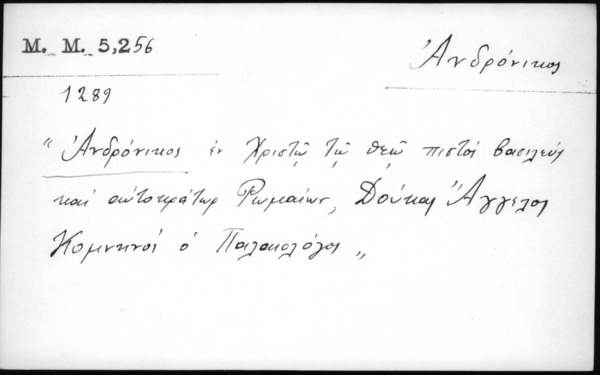 M. M. 5,256
Ἀνδρόνικος
1289
" Ἀνδρόνικος ἐν Χριστῷ τῷ θεῷ πιστὸς βασιλεὺς
καὶ αὐτοκράτωρ Ῥωμαίων, Δούκας Ἄγγελος
Κομνηνὸς ὁ Παλαιολόγος "